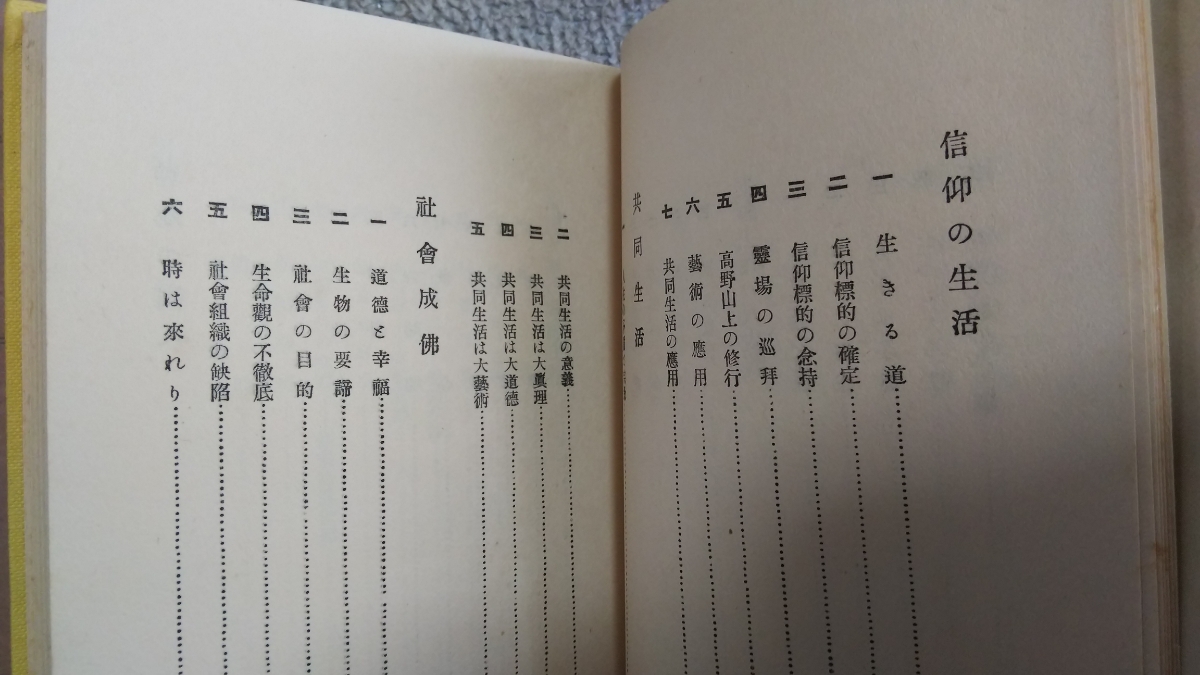 信仰の生活
一 生きる道
二 信仰標的の確定
三 信仰標的の念持
四 靈場の巡拜
五 高野山上の修行
六 藝術の應用
七 共同生活の應用
共同生活
二 共同生活の意義
三 共同生活は大眞理
四 共同生活は大道德
五 共同生活は大藝術
社會成佛
一 道德と幸福
二 生物の要諦
三 社會の目的
四 生命觀の不徹底
五 社會組織の缺陷
六 時は來れり